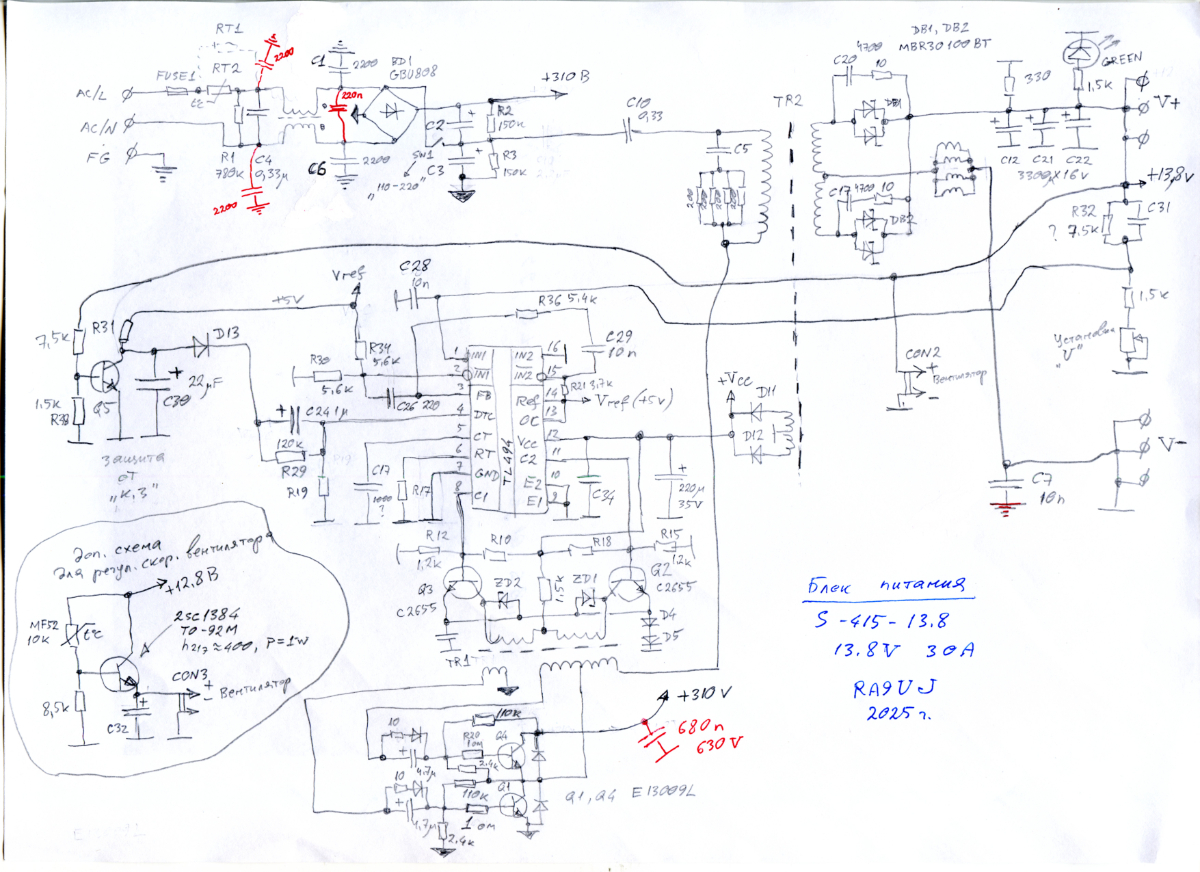 RT1
RT2
FUSE1
t°c
AC/L
AC/N
FG
R1
780к
C4
0,33µ
2200
2200
C1
2200
220n
C6
2200
BD1
GBU808
+310 В
C2
R2
150к
C3
R3
150к
SW1
"110-220"
C10
0,33
C5
TR2
DB1, DB2
MBR30100BT
4700
10
C20
DB1
C17
4700
10
DB2
330
GREEN
1,5к
V+
C12
C21
C22
3300µ x 16v
+13,8v
R32
? 7,5к
C31
1,5к
Установка
"U"
CON2
+
Вентилятор
-
V-
C7
10n
Vref
+5V
C28
10n
R36 5,4к
C29
10n
7,5к
R31
D13
Q5
22µF
C30
1,5к
R38
защита
от
"К.З"
R34
5,6к
R30
5,6к
C26 220
C24 1µ
120к
R29
R19
C17
1000
?
R17
1 IN1
2 IN1
3 FB
4 DTC
5 CT
6 RT
7 GND
8 C1
TL494
IN2 16
IN2 15
Ref 14
OC 13
Vcc 12
C2 11
E2 10
E1 9
R21 3,7к
Vref (+5v)
+Vcc
D11
D12
C34
220µ
35V
R12
1,2к
R10
R18
R15
1,2к
Q3
C2655
ZD2
1,5к
ZD1
Q2
C2655
D4
D5
TR1
Доп. схема
для регул. скор. вентилятора
+12.8 В
MF52
10к
t°c
2SC1384
TO-92M
h21э≈400, P=1w
CON3
+
Вентилятор
-
8,5к
C32
10
4,7µ
R20
10м
110к
Q4
2.4к
10
4,7µ
110к
Q1
1 ом
2.4к
+310V
680n
630V
Q1, Q4 E13009L
Блок питания
S-415-13.8
13.8V 30A
RA9UJ
2025г.